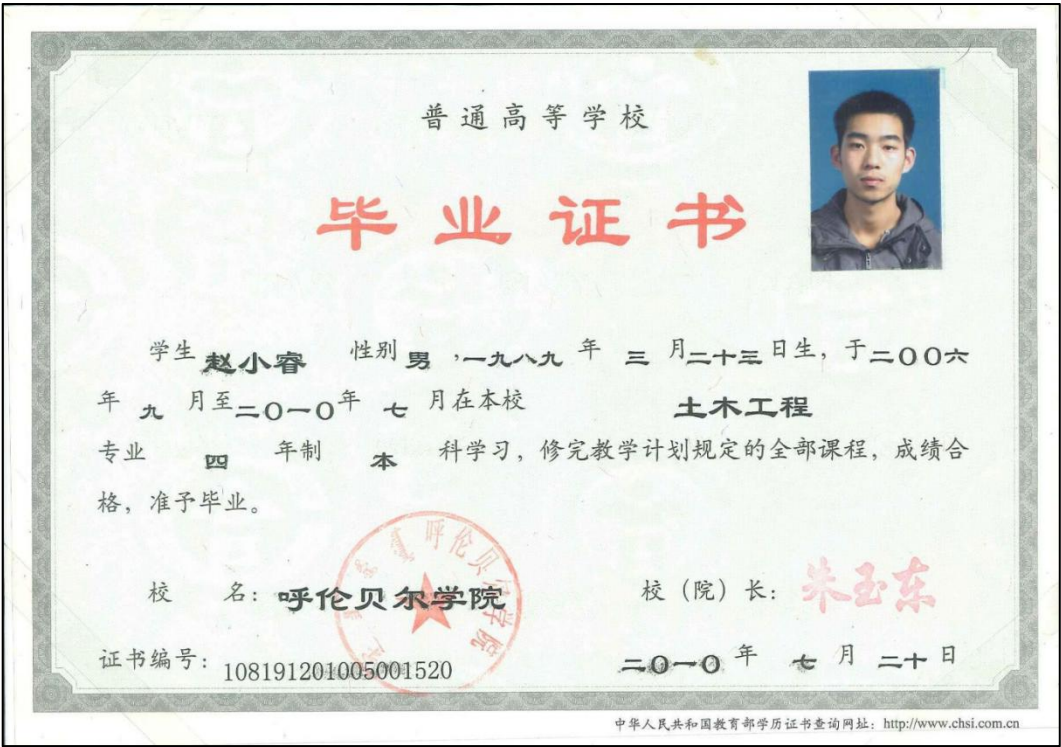 普通高等学校
毕业证书
学生 赵小睿 性别 男 ,一九八九 年 三 月 二十三 日生，于 二〇〇六
年 九 月至 二〇一〇 年 七 月在本校 土木工程
专业 四 年制 本 科学习，修完教学计划规定的全部课程，成绩合
格，准予毕业。
呼伦贝尔学院
校 名：呼伦贝尔学院 校（院）长：朱玉东
证书编号：108191201005001520 二〇一〇 年 七 月 二十 日
中华人民共和国教育部学历证书查询网址：http://www.chsi.com.cn